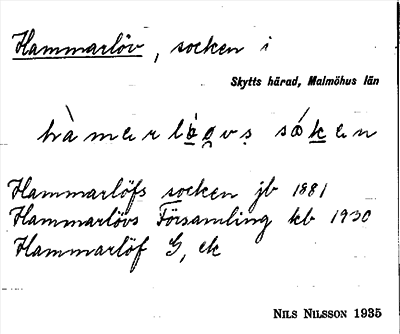 Hammarlöv, socken i
Skytts härad, Malmöhus län
Hammarlöfs socken jb 1881
Hammarlövs Församling kb 1930
Hammarlöf G, ek
NILS NILSSON 1935